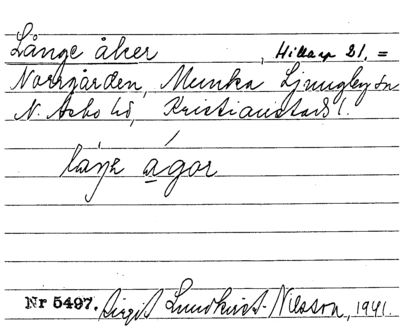 Långe åker, Hillarp 21. =
Norrgården, Munka Ljungby sn
N. Åsbo hd, Kristianstads l.
låŋe ågor
Nr 5497. Birgit Lundkvist-Nilsson, 1941.